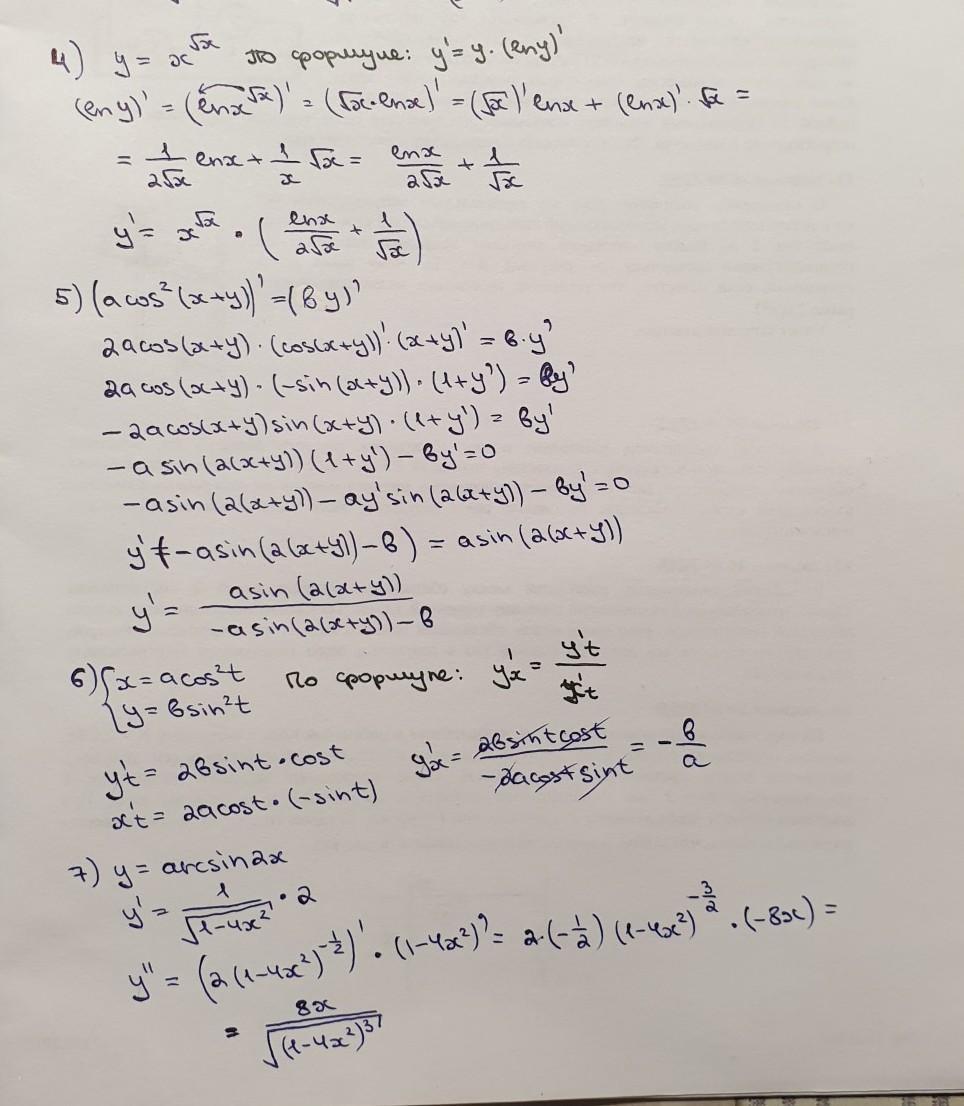 4) y = x^√x по формуле: y' = y · (ln y)'
(ln y)' = (ln x^√x)' = (√x · ln x)' = (√x)' ln x + (ln x)' · √x =
= 1/(2√x) ln x + 1/x √x = ln x/(2√x) + 1/√x
y' = x^√x · (ln x/(2√x) + 1/√x)
5) (a cos²(x+y))' = (by)'
2a cos(x+y) · (cos(x+y))' · (x+y)' = b · y'
2a cos(x+y) · (-sin(x+y)) · (1+y') = by'
-2a cos(x+y) sin(x+y) · (1+y') = by'
-a sin(2(x+y)) (1+y') - by' = 0
-a sin(2(x+y)) - ay' sin(2(x+y)) - by' = 0
y'(-a sin(2(x+y)) - b) = a sin(2(x+y))
y' = a sin(2(x+y))/(-a sin(2(x+y)) - b)
6) { x = a cos²t по формуле: y'x = y't/x't
y = b sin²t
y't = 2b sin t · cos t y'x = 2b sin t cos t/(-2a cos t sin t) = -b/a
x't = 2a cos t · (-sin t)
7) y = arcsin 2x
y' = 1/√(1-4x²) · 2
y'' = (2(1-4x²)^(-1/2))' · (1-4x²)' = 2 · (-1/2) (1-4x²)^(-3/2) · (-8x) =
= 8x/√((1-4x²)³)